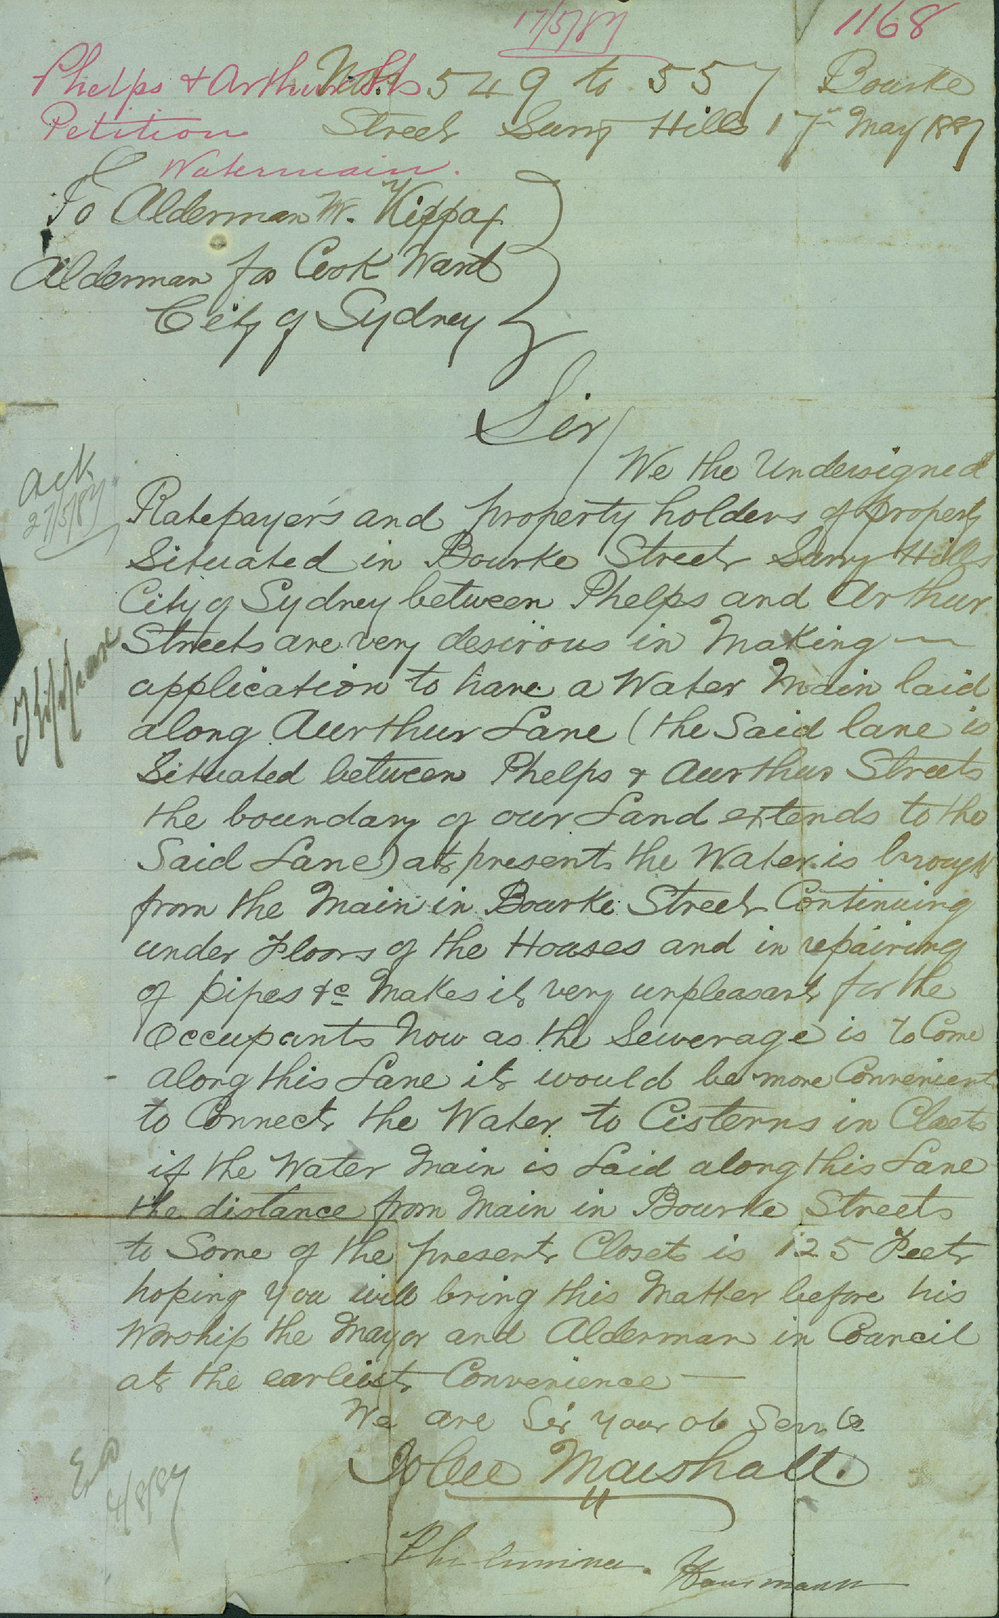 17/5/87
1168
Phelps & Arthur Sts
Petition
Watermain.
Nos 549 to 557 Bourke
Street Surry Hills 17th May 1887
To Alderman W. Kippax
Alderman for Cook Ward
City of Sydney
Sir
We the Undersigned
Ratepayer's and property holders of property
Situated in Bourke Street Surry Hills
City of Sydney between Phelps and Arthur
Streets are very desirous in Making
application to have a Water Main laid
along Aurthur Lane (the Said lane is
Situated between Phelps & Aurthur Streets
the boundary of our Land extends to the
Said Lane) at present the Water is brought
from the Main in Bourke Street Continuing
under Floors of the Houses and in repairing
of pipes &c Makes it very unpleasant for the
Occupants Now as the Sewerage is to Come
along this Lane it would be more Convenient
to Connect the Water to Cisterns in Closets
if the Water Main is Laid along this Lane
the distance from Main in Bourke Streets
to Some of the present Closets is 125 Feet
hoping you will bring this Matter before his
Worship the Mayor and Alderman in Council
at the earliest Convenience
We are Sir your ob Servts
Marshall.
Philumina Hausmann
Ack
27/5/87
Kippax
4/8/87